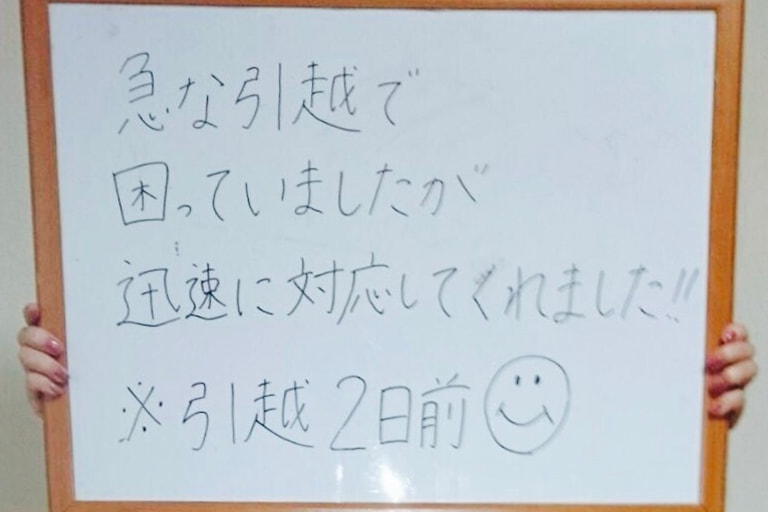 急な引越で
困っていましたが
迅速に対応してくれました!!
※引越2日前